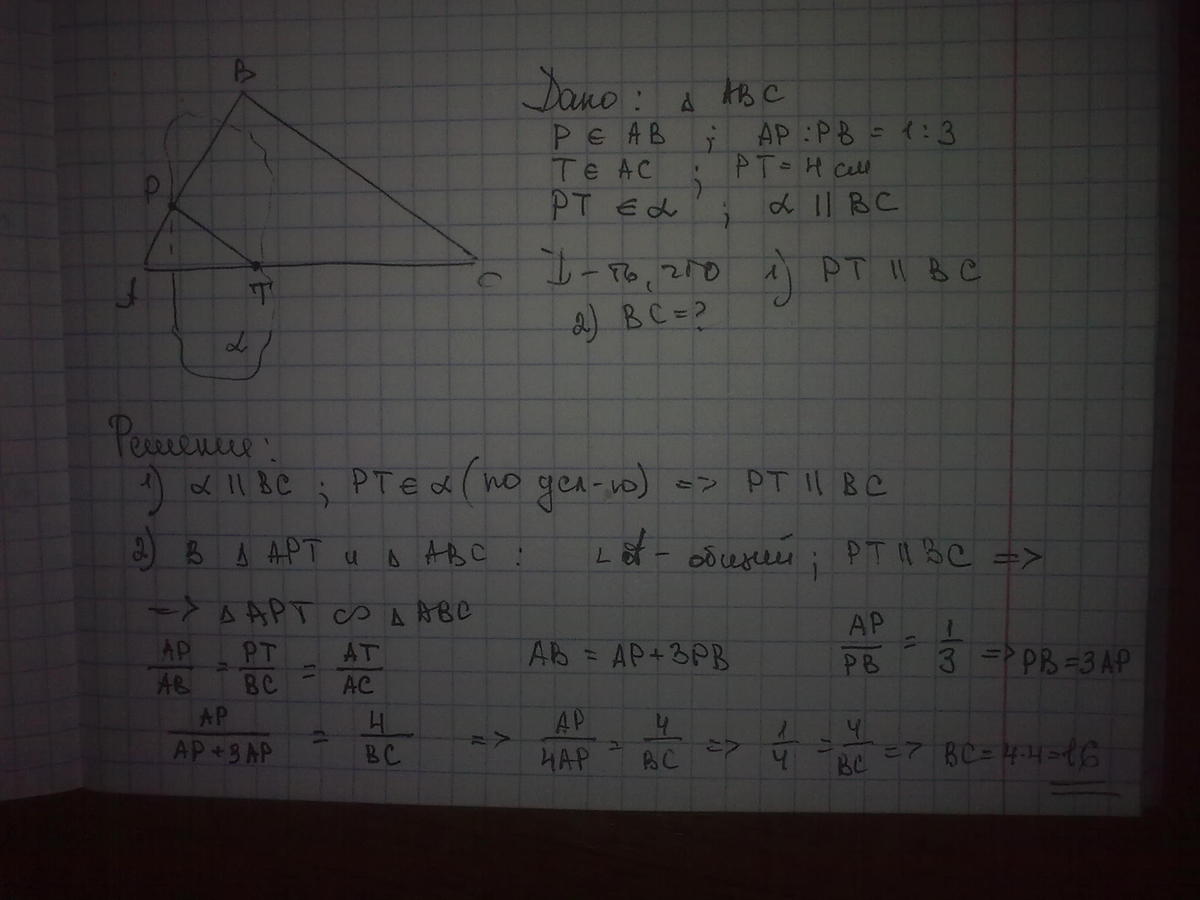 B
P
A
T
C
α
Дано: Δ ABC
P ∈ AB ; AP:PB = 1:3
T ∈ AC ; PT = 4 см
PT ∈ α ; α || BC
Д-ть, что 1) PT || BC
2) BC = ?
Решение:
1) α || BC ; PT ∈ α (по усл-ю) => PT || BC
2) В Δ APT и Δ ABC : ∠A - общий ; PT || BC =>
=> Δ APT ∽ Δ ABC
AP/AB = PT/BC = AT/AC AB = AP + 3PB AP/PB = 1/3 => PB = 3AP
AP/(AP+3AP) = 4/BC => AP/4AP = 4/BC => 1/4 = 4/BC => BC = 4·4 = 16